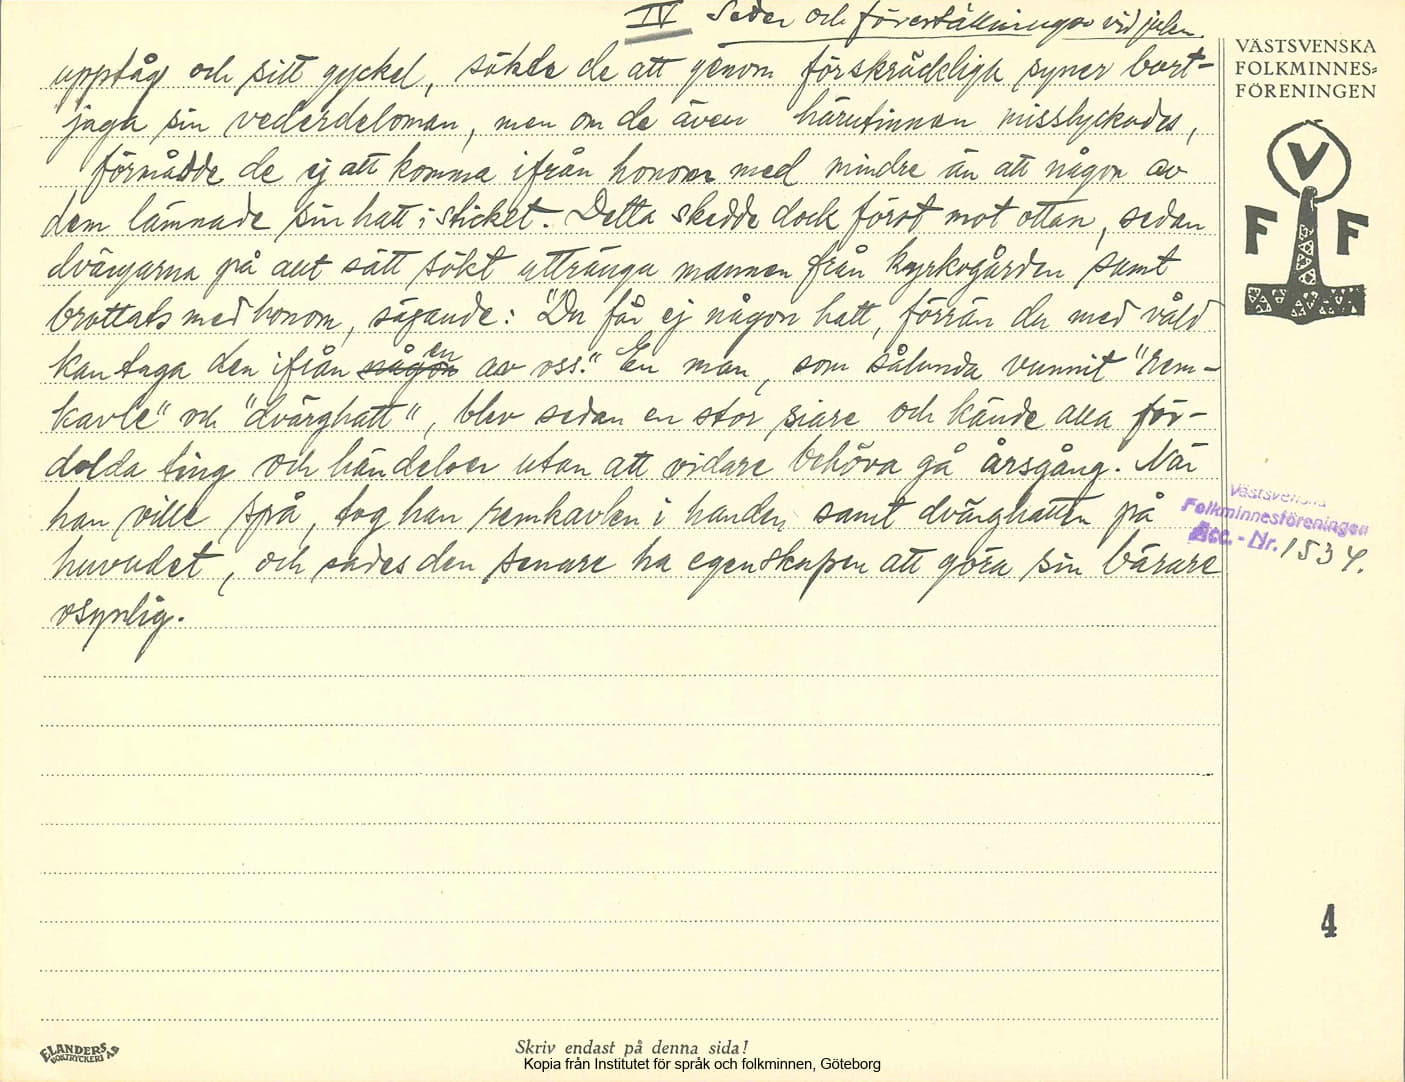 IV Seder och föreställningar vid julen.
upptåg och sitt gyckel, sökte de att genom förskräckliga syner bort-
jaga sin vederdeloman, men om de även härutinnan misslyckades,
förmådde de ej att komma ifrån honom med mindre än att någon av
dem lämnade sin hatt i sticket. Detta skedde dock först mot ottan, sedan
dvärgarna på allt sätt sökt uttränga mannen från kyrkogården samt
brottats med honom, sägande: "Du får ej någon hatt, förrän du med våld
kan taga den ifrån någon en av oss." En man, som sålunda vunnit "rem-
kavle" och "dvärghatt", blev sedan en stor siare och kände alla för-
dolda ting och händelser utan att vidare behöva gå årsgång. När
han ville spå, tog han remkavlen i handen samt dvärghatten på
huvudet, och sades den senare ha egenskapen att göra sin bärare
osynlig.
VÄSTSVENSKA
FOLKMINNES=
FÖRENINGEN
V
F F
Västsvenska
Folkminnesföreningen
Acc. - Nr. 1534.
4
ELANDERS
BOKTRYCKERI AB
Skriv endast på denna sida!
Kopia från Institutet för språk och folkminnen, Göteborg